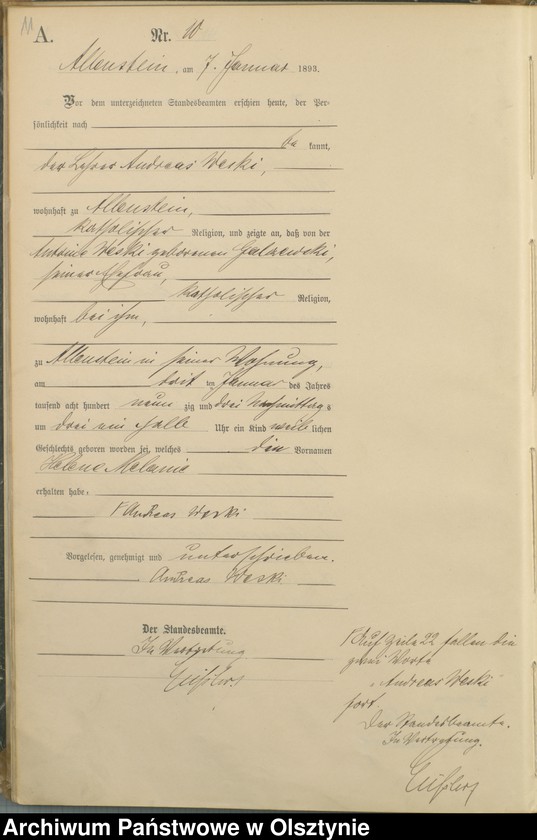 11
A.
Nr. 10
Allenstein, am 7. Januar 1893.
Vor dem unterzeichneten Standesbeamten erschien heute, der Per-
sönlichkeit nach
be kannt,
der Lehrer Andreas Weski,
wohnhaft zu Allenstein,
katholischer Religion, und zeigte an, daß von der
Weski geborenen
seiner Ehefrau,
katholischer Religion,
wohnhaft bei ihm,
zu Allenstein in seiner Wohnung,
am drit ten Januar des Jahres
tausend acht hundert neun zig und drei Nachmittag s
um drei ein halb Uhr ein Kind weib lichen
Geschlechts geboren worden sei, welches die Vornamen
Helene Melanie
erhalten habe.
Andreas Weski
Vorgelesen, genehmigt und unterschrieben.
Andreas Weski
Der Standesbeamte.
In Vertretung
Auf Zeile 22 fallen die
zwei Worte
"Andreas Weski
fort.
Der Standesbeamte.
In Vertretung.
Archiwum Państwowe w Olsztynie